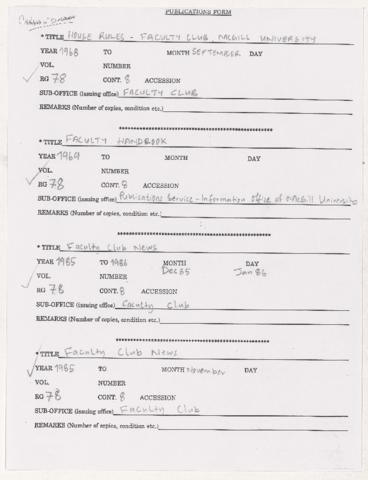 PUBLICATIONS FORM
* TITLE HOUSE RULES - FACULTY CLUB MCGILL UNIVERSITY
YEAR 1968 TO MONTH SEPTEMBER DAY
VOL. NUMBER
RG 78 CONT. 8 ACCESSION
SUB-OFFICE (issuing office) FACULTY CLUB
REMARKS (Number of copies, condition etc.)
* TITLE FACULTY HANDBOOK
YEAR 1969 TO MONTH DAY
VOL. NUMBER
RG 78 CONT. 8 ACCESSION
SUB-OFFICE (issuing office) Publications Service - Information Office of McGill University
REMARKS (Number of copies, condition etc.)
* TITLE Faculty Club News
YEAR 1985 TO 1986 MONTH Dec 85 DAY Jan 86
VOL. NUMBER
RG 78 CONT. 8 ACCESSION
SUB-OFFICE (issuing office) Faculty Club
REMARKS (Number of copies, condition etc.)
* TITLE Faculty Club News
YEAR 1985 TO MONTH November DAY
VOL. NUMBER
RG 78 CONT. 8 ACCESSION
SUB-OFFICE (issuing office) Faculty Club
REMARKS (Number of copies, condition etc.)